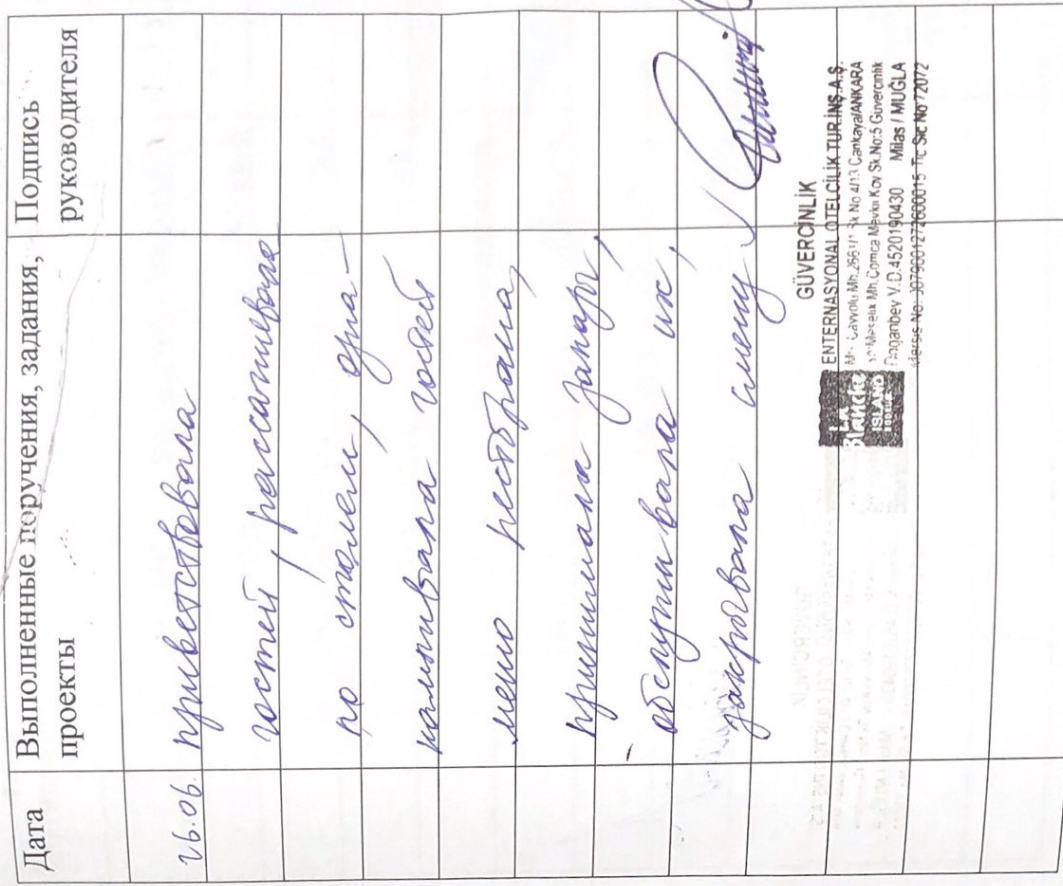 Дата
Выполненные поручения, задания, проекты
Подпись руководителя
26.06. приветствовала
гостей, рассаживала
по столам, озна-
камливала гостей
меню ресторана,
принимала заказы,
обслуживала их,
закрывала смену
GÜVERCİNLİK
ENTERNASYONAL OTELCİLİK TUR.İNŞ.A.Ş.
No 4/13 Çankaya/ANKARA
Mh.Comca Mevkii Köy Sk.No:5 Güvercinlik
V.D.4520190430 Milas / MUĞLA
Tic Sic No 72072
La Blanche
ISLAND
BODRUM